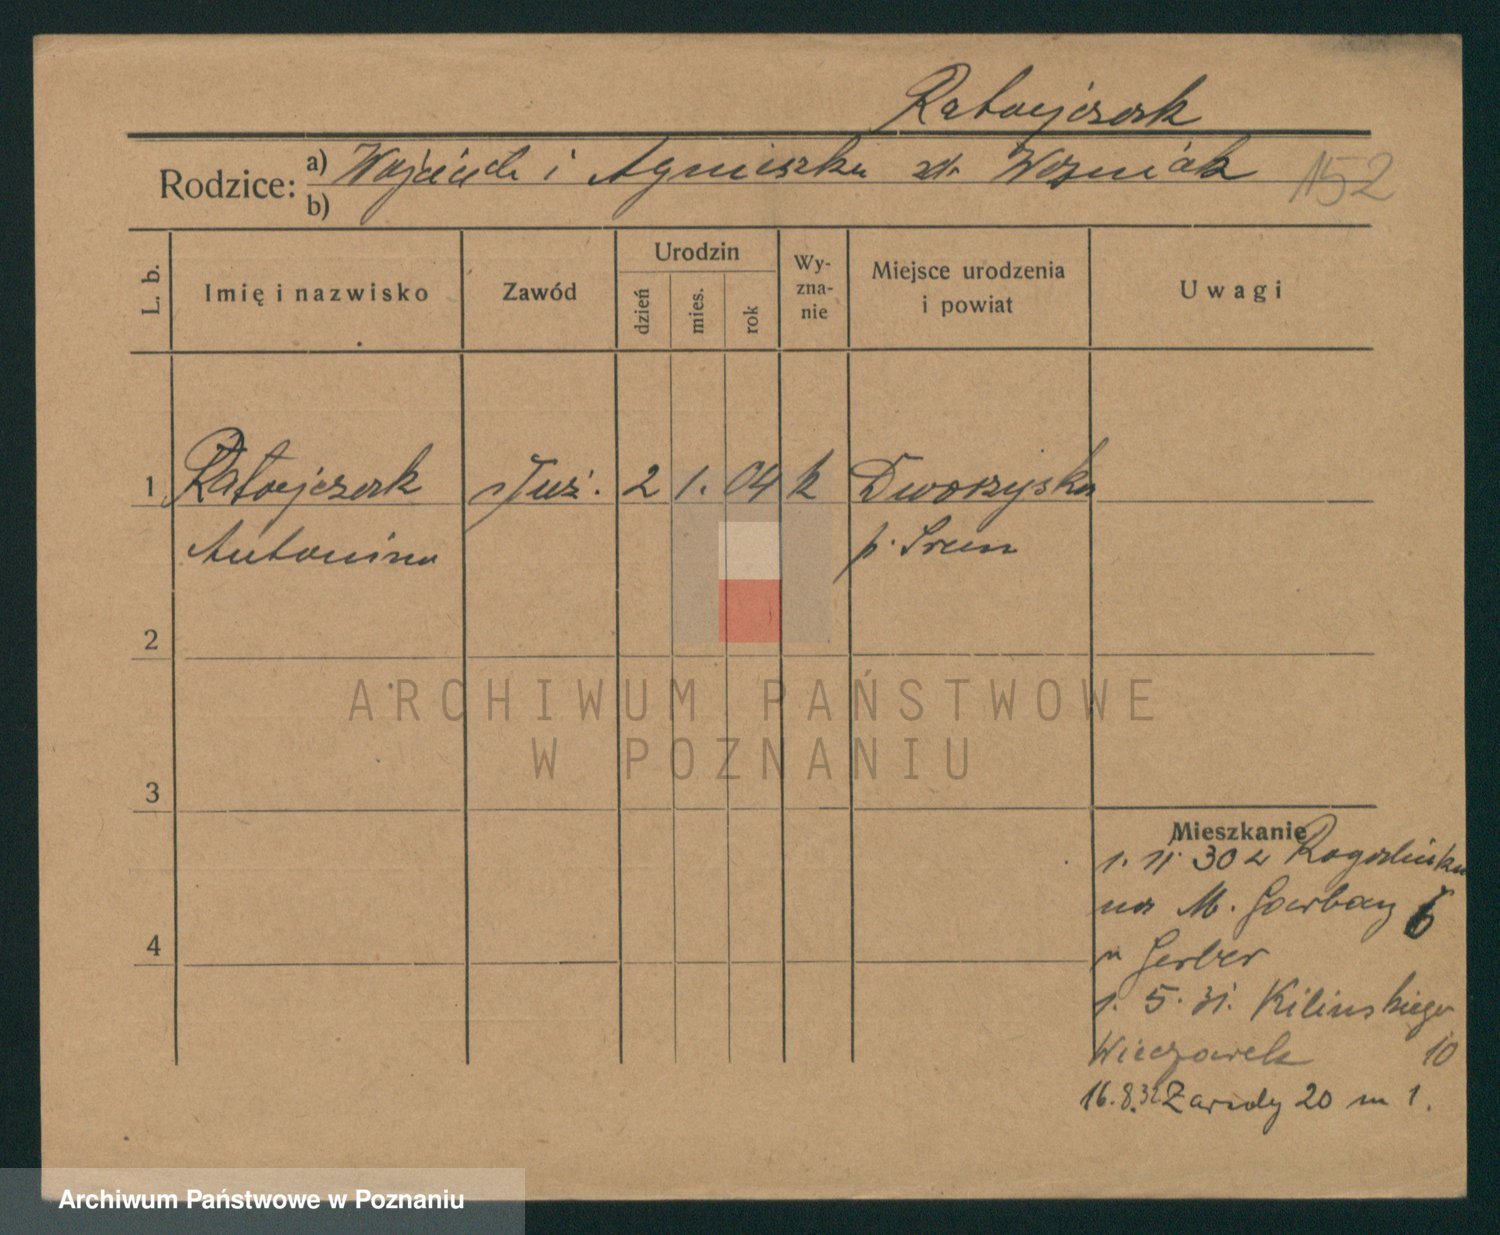 Ratajczak
Rodzice: a) Wojciech i Agnieszka zd. Wozniak 152
b)
L. b. Imię i nazwisko Zawód Urodzin dzień mies. rok Wy-zna-nie Miejsce urodzenia i powiat Uwagi
1 Ratajczak służ. 2 1. 04 k Dworzyska
Antonina p. Srem
2
3
4
Mieszkanie
1. 11 30 z Rogozińska
na M. Garbary 6
u Gerber
1. 5. 31. Kilinskiego
Wieczorek 10
16.8.32 Zawady 20 m 1.
ARCHIWUM PAŃSTWOWE
W POZNANIU
Archiwum Państwowe w Poznaniu